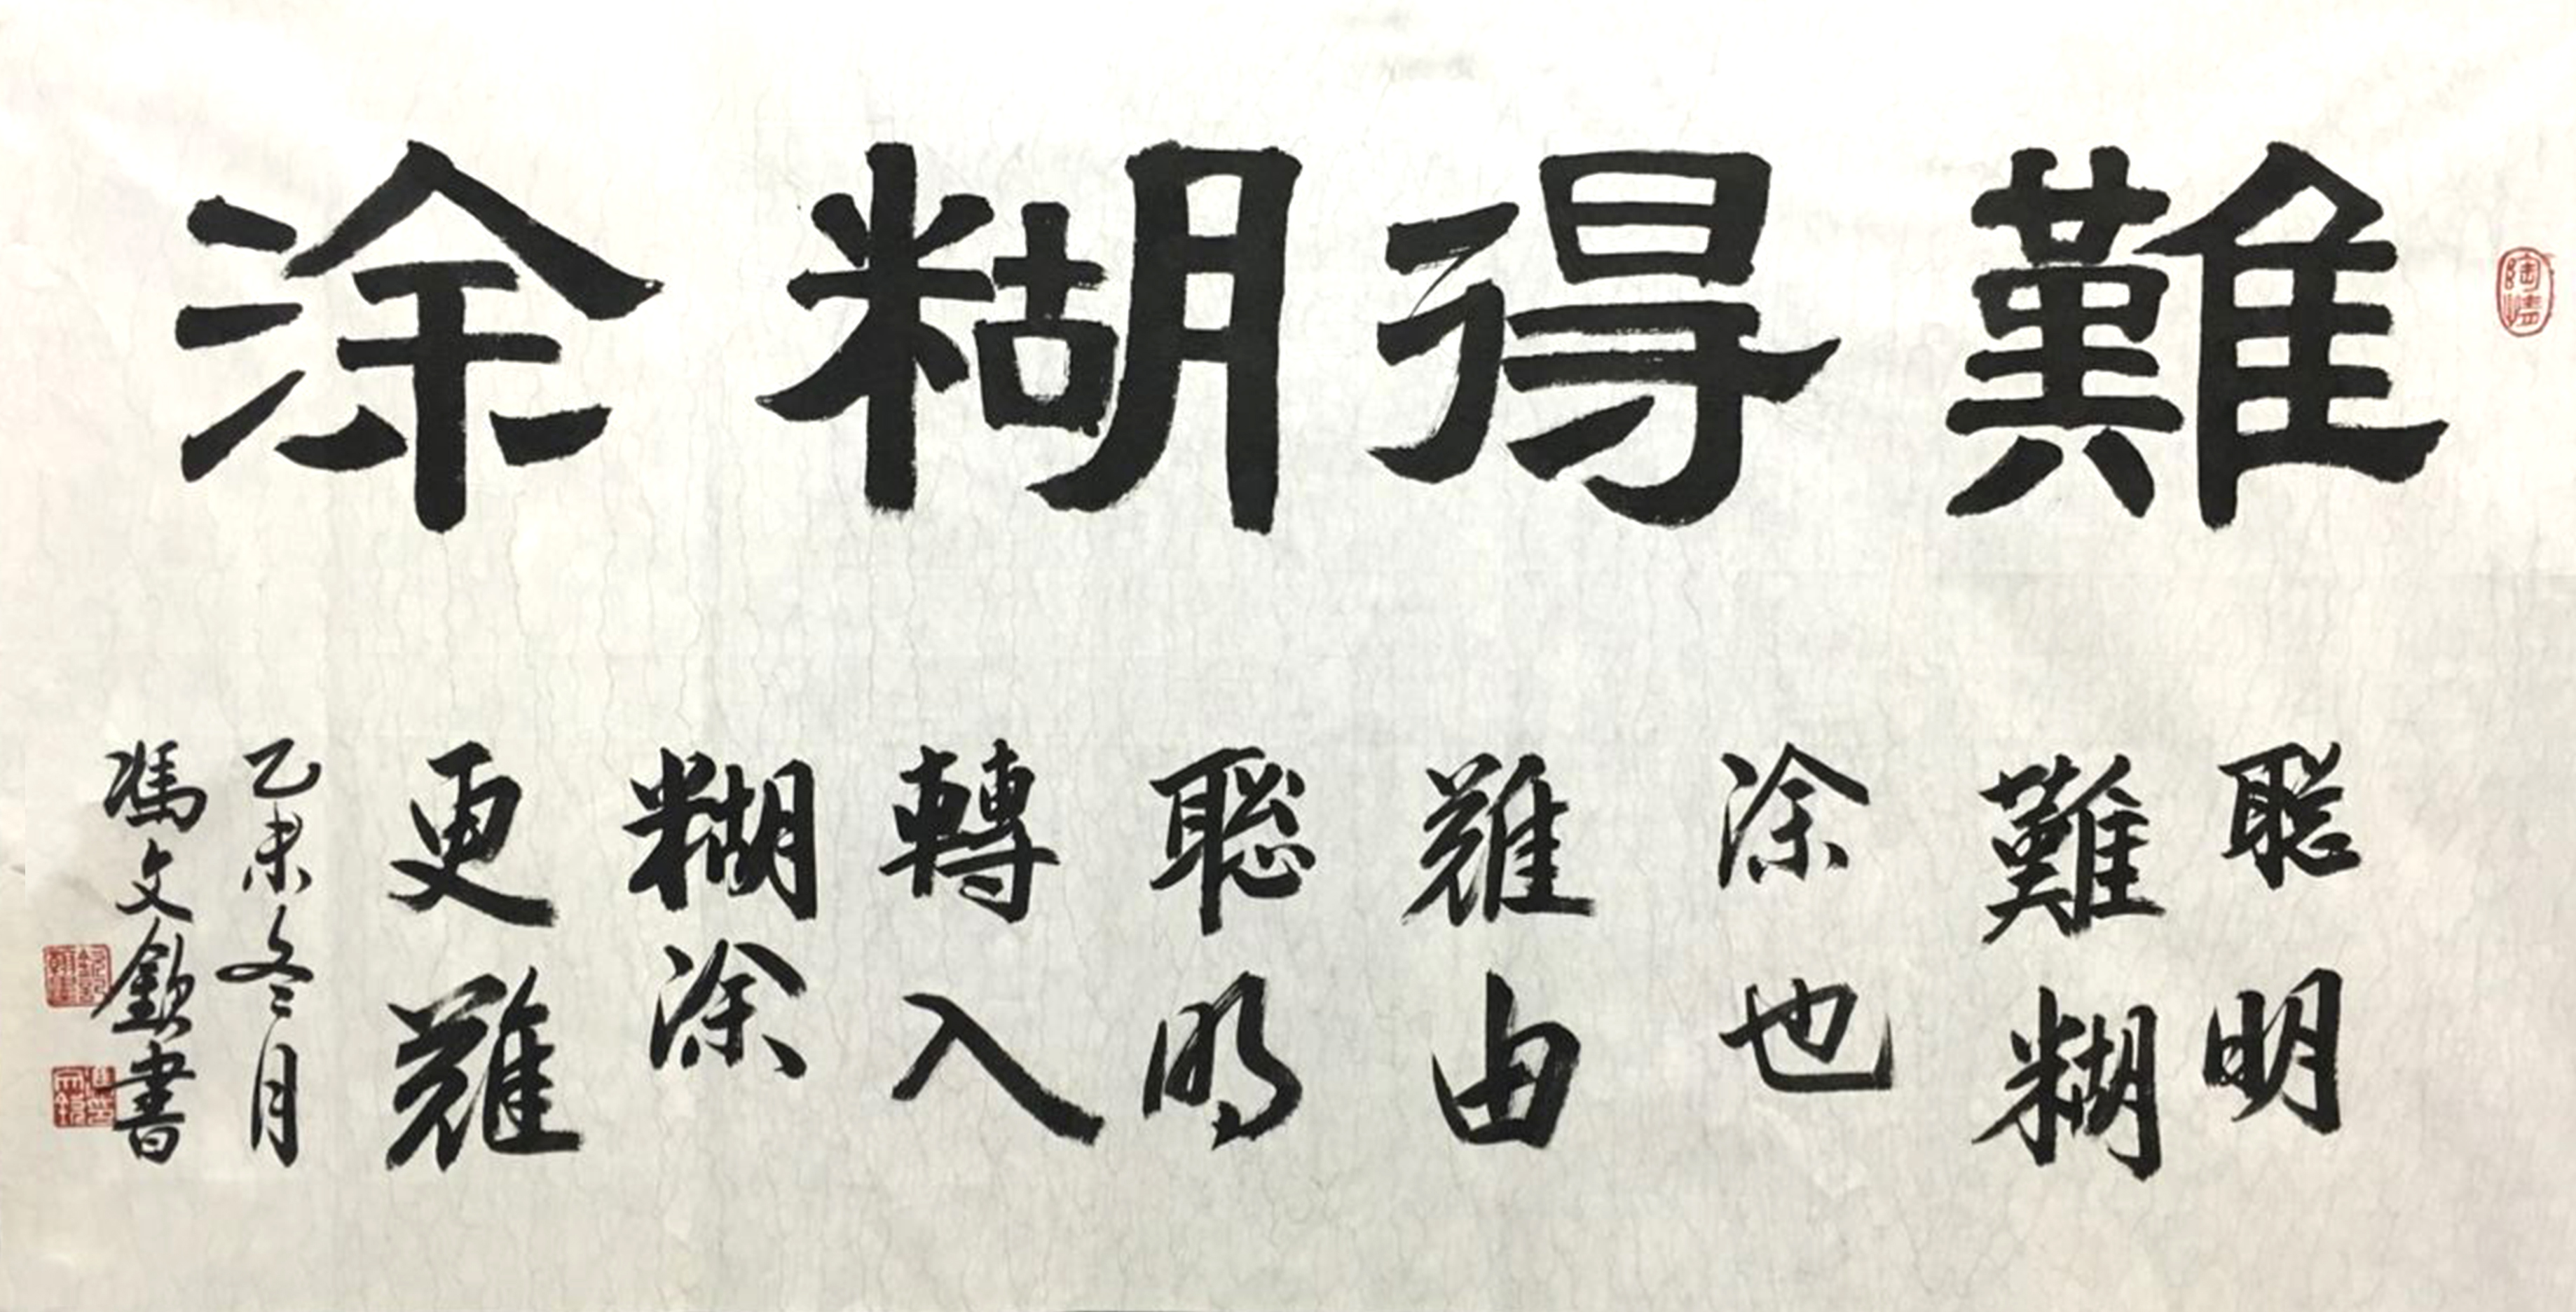 難得糊涂
聡明
難糊
涂也
難由
聰明
轉入
糊涂
更難
乙未冬月
馮文欽書
陶情